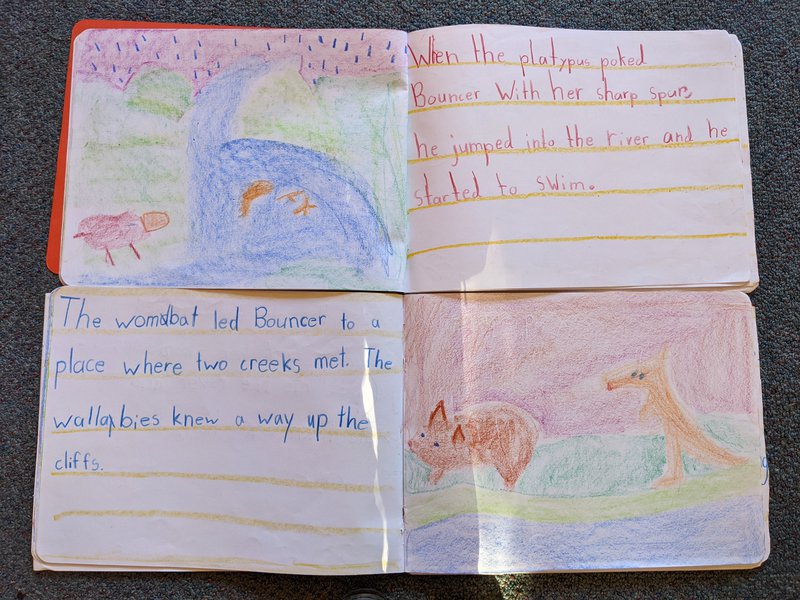 When the platypus poked
Bouncer with her sharp spurs
he jumped into the river and he
started to swim.
The wombat led Bouncer to a
place where two creeks met. The
wallabies knew a way up the
cliffs.